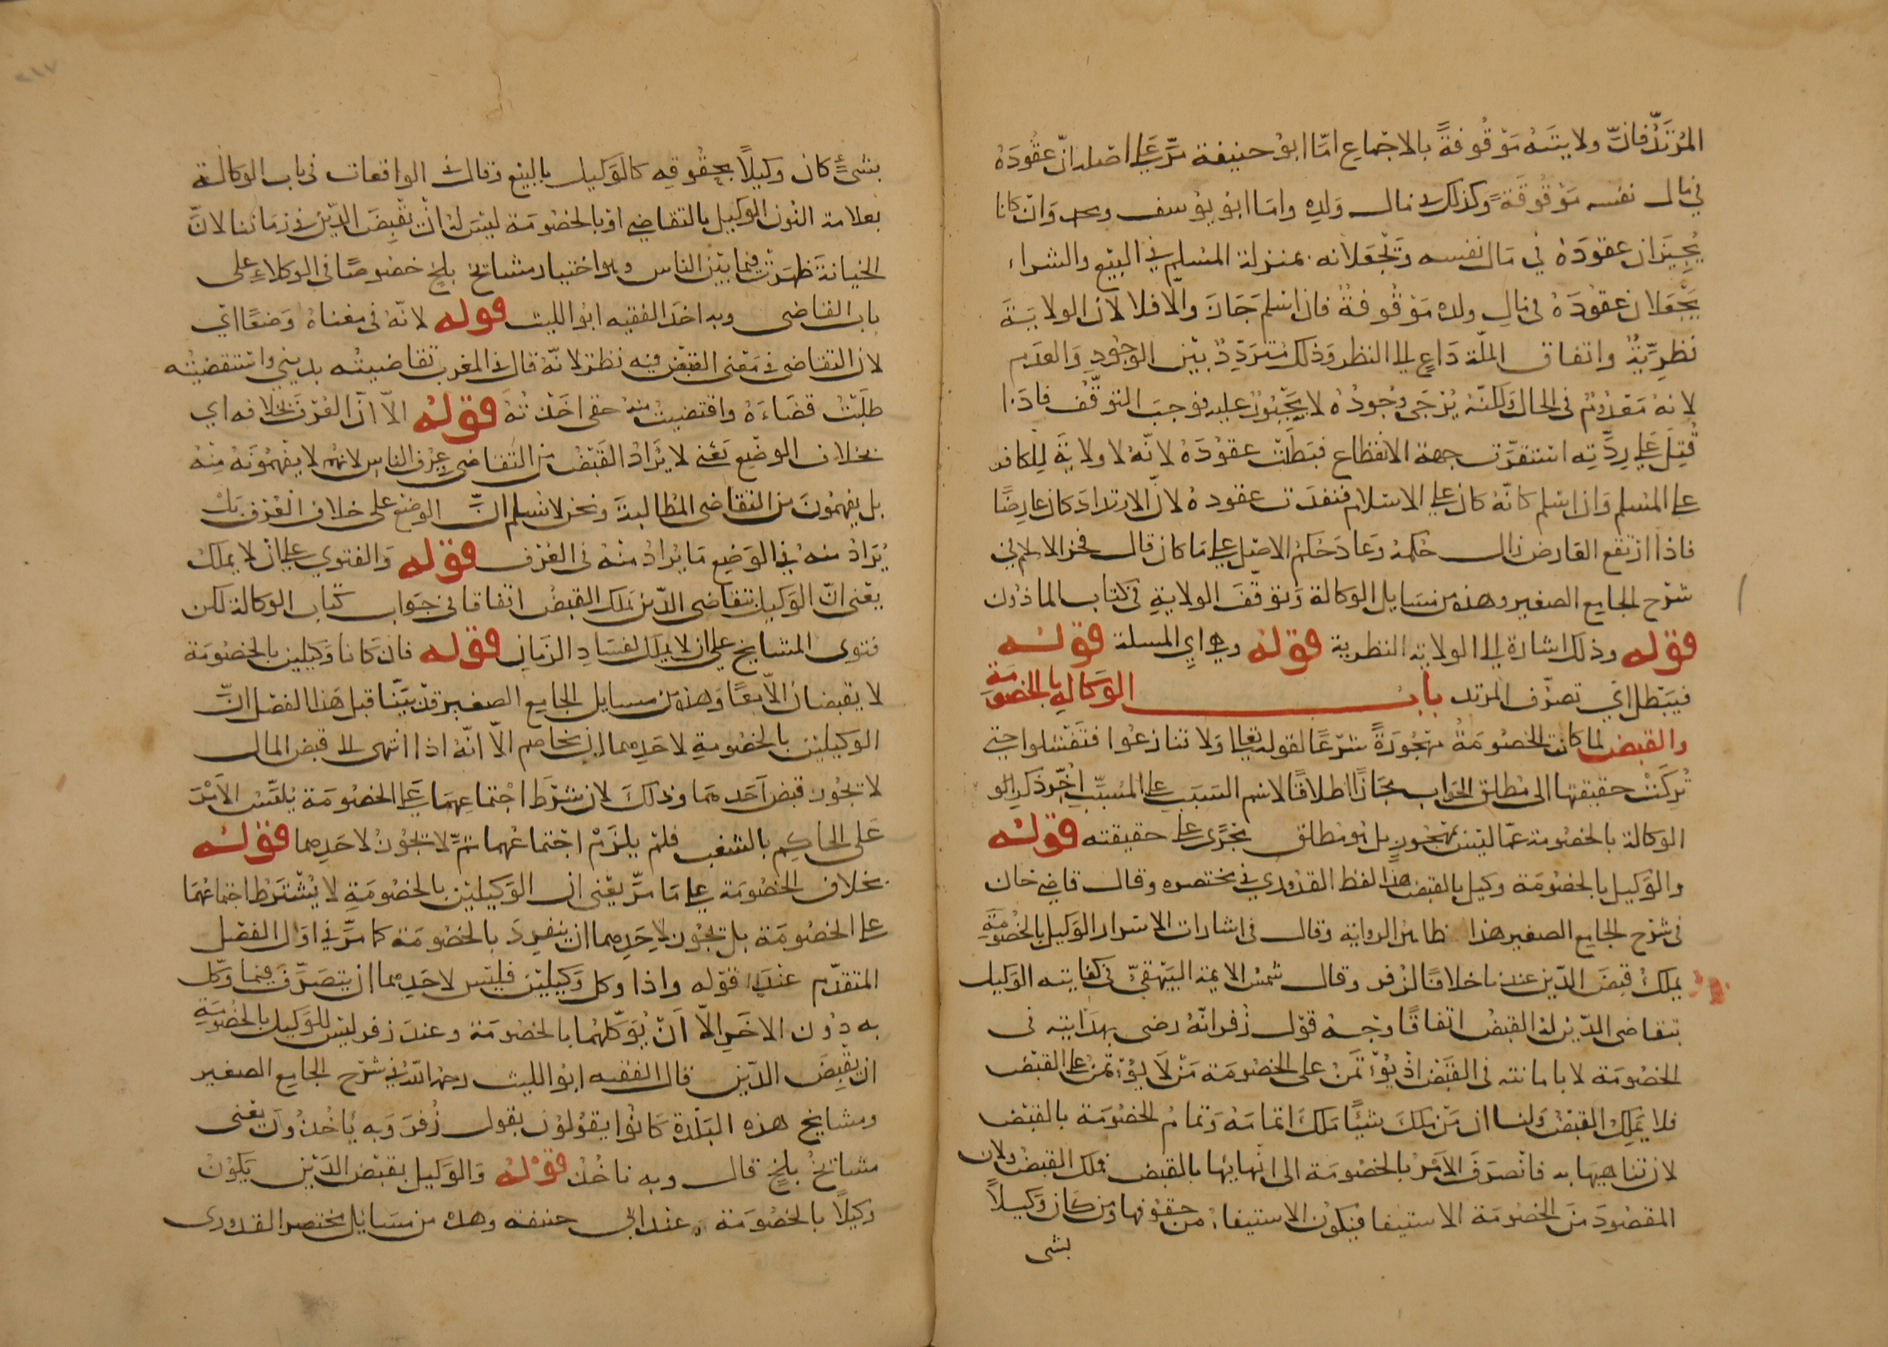 المرتد فان ولايته موقوفة بالاجماع امّا ابو حنيفة مرّ على اصله ان عقوده
في مال نفسه موقوفة وكذلك في مال ولده واما ابو يوسف ومحمد وان كانا
يجيزان عقوده في مال نفسه وتجعلانه بمنزلة المسلم في البيع والشراء
يجعلان عقوده في مال ولده موقوفة فان اسلم جاز والّا فلا لان الولاية
نظريّة واتفاق الملّة داعٍ الى النظر وذلك متردّد بين الوجود والعدم
لانه معدوم في الحال ولكنه يرجى وجوده لا يجبون عليه فوجب التوقّف فاذا
قُتِلَ على ردّته استقرّت جهة الانقطاع فبطلت عقوده لانّه لا ولاية للكافر
على المسلم وان اسلم كانّه كان على الاسلام فنفذت عقوده لانّ الارتداد كان عارضًا
فاذا ارتفع العارض زال حكمه وعاد حكم الاصل على ما كان قال فخر الاسلام في
شرح الجامع الصغير وهذه من مسايل الوكالة وتوقّف الولاية في كتاب الماذون
قوله وذلك اشارة الى الولاية النظرية قوله وهي اي المسلة قوله
فيبطل اي تصرّف المرتد باب الوكالة بالخصومة
والقبض لما كانت الخصومة مهجورة شرعًا لقوله تعالى ولا تنازعوا فتفشلوا حتى
تُركت حقيقتها الى مطلق الجواب مجازًا اطلاقًا لاسم السبب على المسبّب اخّر ذكر الو
الوكالة بالخصومة عمّا ليس بمهجور بل هو مطلق يجرى على حقيقته قوله
والوكيل بالخصومة وكيل بالقبض هذا لفظ القدوري في مختصره وقال قاضي خان
في شرح الجامع الصغير هذا ظاهر الرواية وقال في اشارات الاسرار الوكيل بالخصومة
يملك قبض الدّين عندنا خلافًا لزفر وقال شمس الايمة البيهقيّ في كفايته الوكيل
بتقاضى الدّين له القبض اتفاقًا وجه قول زفر انّه رضي بهدايته في
الخصومة لا بامانته في القبض اذ يُؤتمن على الخصومة مَن لا يُؤتمن على القبض
فلا يملك القبض ولنا ان من ملك شيئًا ملك اتمامه وتمام الخصومة بالقبض
لان تناهيها به فانصرف الامر بالخصومة الى انهايها بالقبض فملك القبض ولان
المقصود من الخصومة الاستيفا فيكون الاستيفاء من حقوقها ومن كان وكيلًا
بشى
بشئٍ كان وكيلًا بحقوقه كالوكيل بالبيع وقال في الواقعات في باب الوكالة
بعلامة النون الوكيل بالتقاضي او بالخصومة ليس له ان يقبض الدّين في زماننا لانّ
الخيانة ظهرت فيما بين الناس وهو اختيار مشايخ بلخ خصوصًا في الوكلاء على
باب القاضى وبه اخذ الفقيه ابو الليث قوله لانّه في معناه وضعًا اي
لان التقاضى في معنى القبض فيه نظر لانّه قال في المغرب تقاضيته بديني واستقضيته
طلبت قضاءه واقتضيت منه حقى اخذته قوله الّا انّ العرف بخلافه اي
بخلاف الوضع يعنى لا يُراد القبض من التقاضى في عرف الناس لانهم لا يفهمونه منه
بل يفهمون من التقاضى المطالبة ونحن لا نسلم انّ الوضع على خلاف العرف بل
يُراد منه في الوضع ما يُراد منه في العرف قوله والفتوى على ان لا يملك
يعنى انّ الوكيل بتقاضى الدّين يملك القبض اتفاقًا في جواب كتاب الوكالة لكن
فتوى المشايخ على ان لا يملك لفساد الزمان قوله فان كانا وكيلين بالخصومة
لا يقبضان الّا معًا وهذه من مسايل الجامع الصغير قد بيّنا قبل هذا الفصل انّ
الوكيلين بالخصومة لاحدهما ان يخاصم الّا انّه اذا انتهى الى قبض المال
لا يجوز قبض احدهما وذلك لان شرط اجتماعهما على الخصومة يلبّس الامر
على الحاكم بالشغب فلم يلزم اجتماعهما ثمّ لا يجوز لاحدهما قوله
بخلاف الخصومة على ما مرّ يعنى ان الوكيلين بالخصومة لا يُشترط اجتماعهما
على الخصومة بل يجوز لاحدهما ان ينفرد بالخصومة كما مرّ في اول الفصل
المتقدّم عند قوله واذا وكل وكيلين فليس لاحدهما ان يتصرّف فيما وكّل
به دون الاخر الّا ان يوكّلهما بالخصومة وعند زفر ليس للوكيل بالخصومة
ان يقبض الدّين قال الفقيه ابو الليث رحمه الله في شرح الجامع الصغير
ومشايخ هذه البلدة كانوا يقولون بقول زُفر وبه ياخذون يعنى
مشايخ بلخ قال وبه ناخذ قوله والوكيل بقبض الدّين يكون
وكيلًا بالخصومة عند ابى حنيفة وهذه من مسايل مختصر القدورى